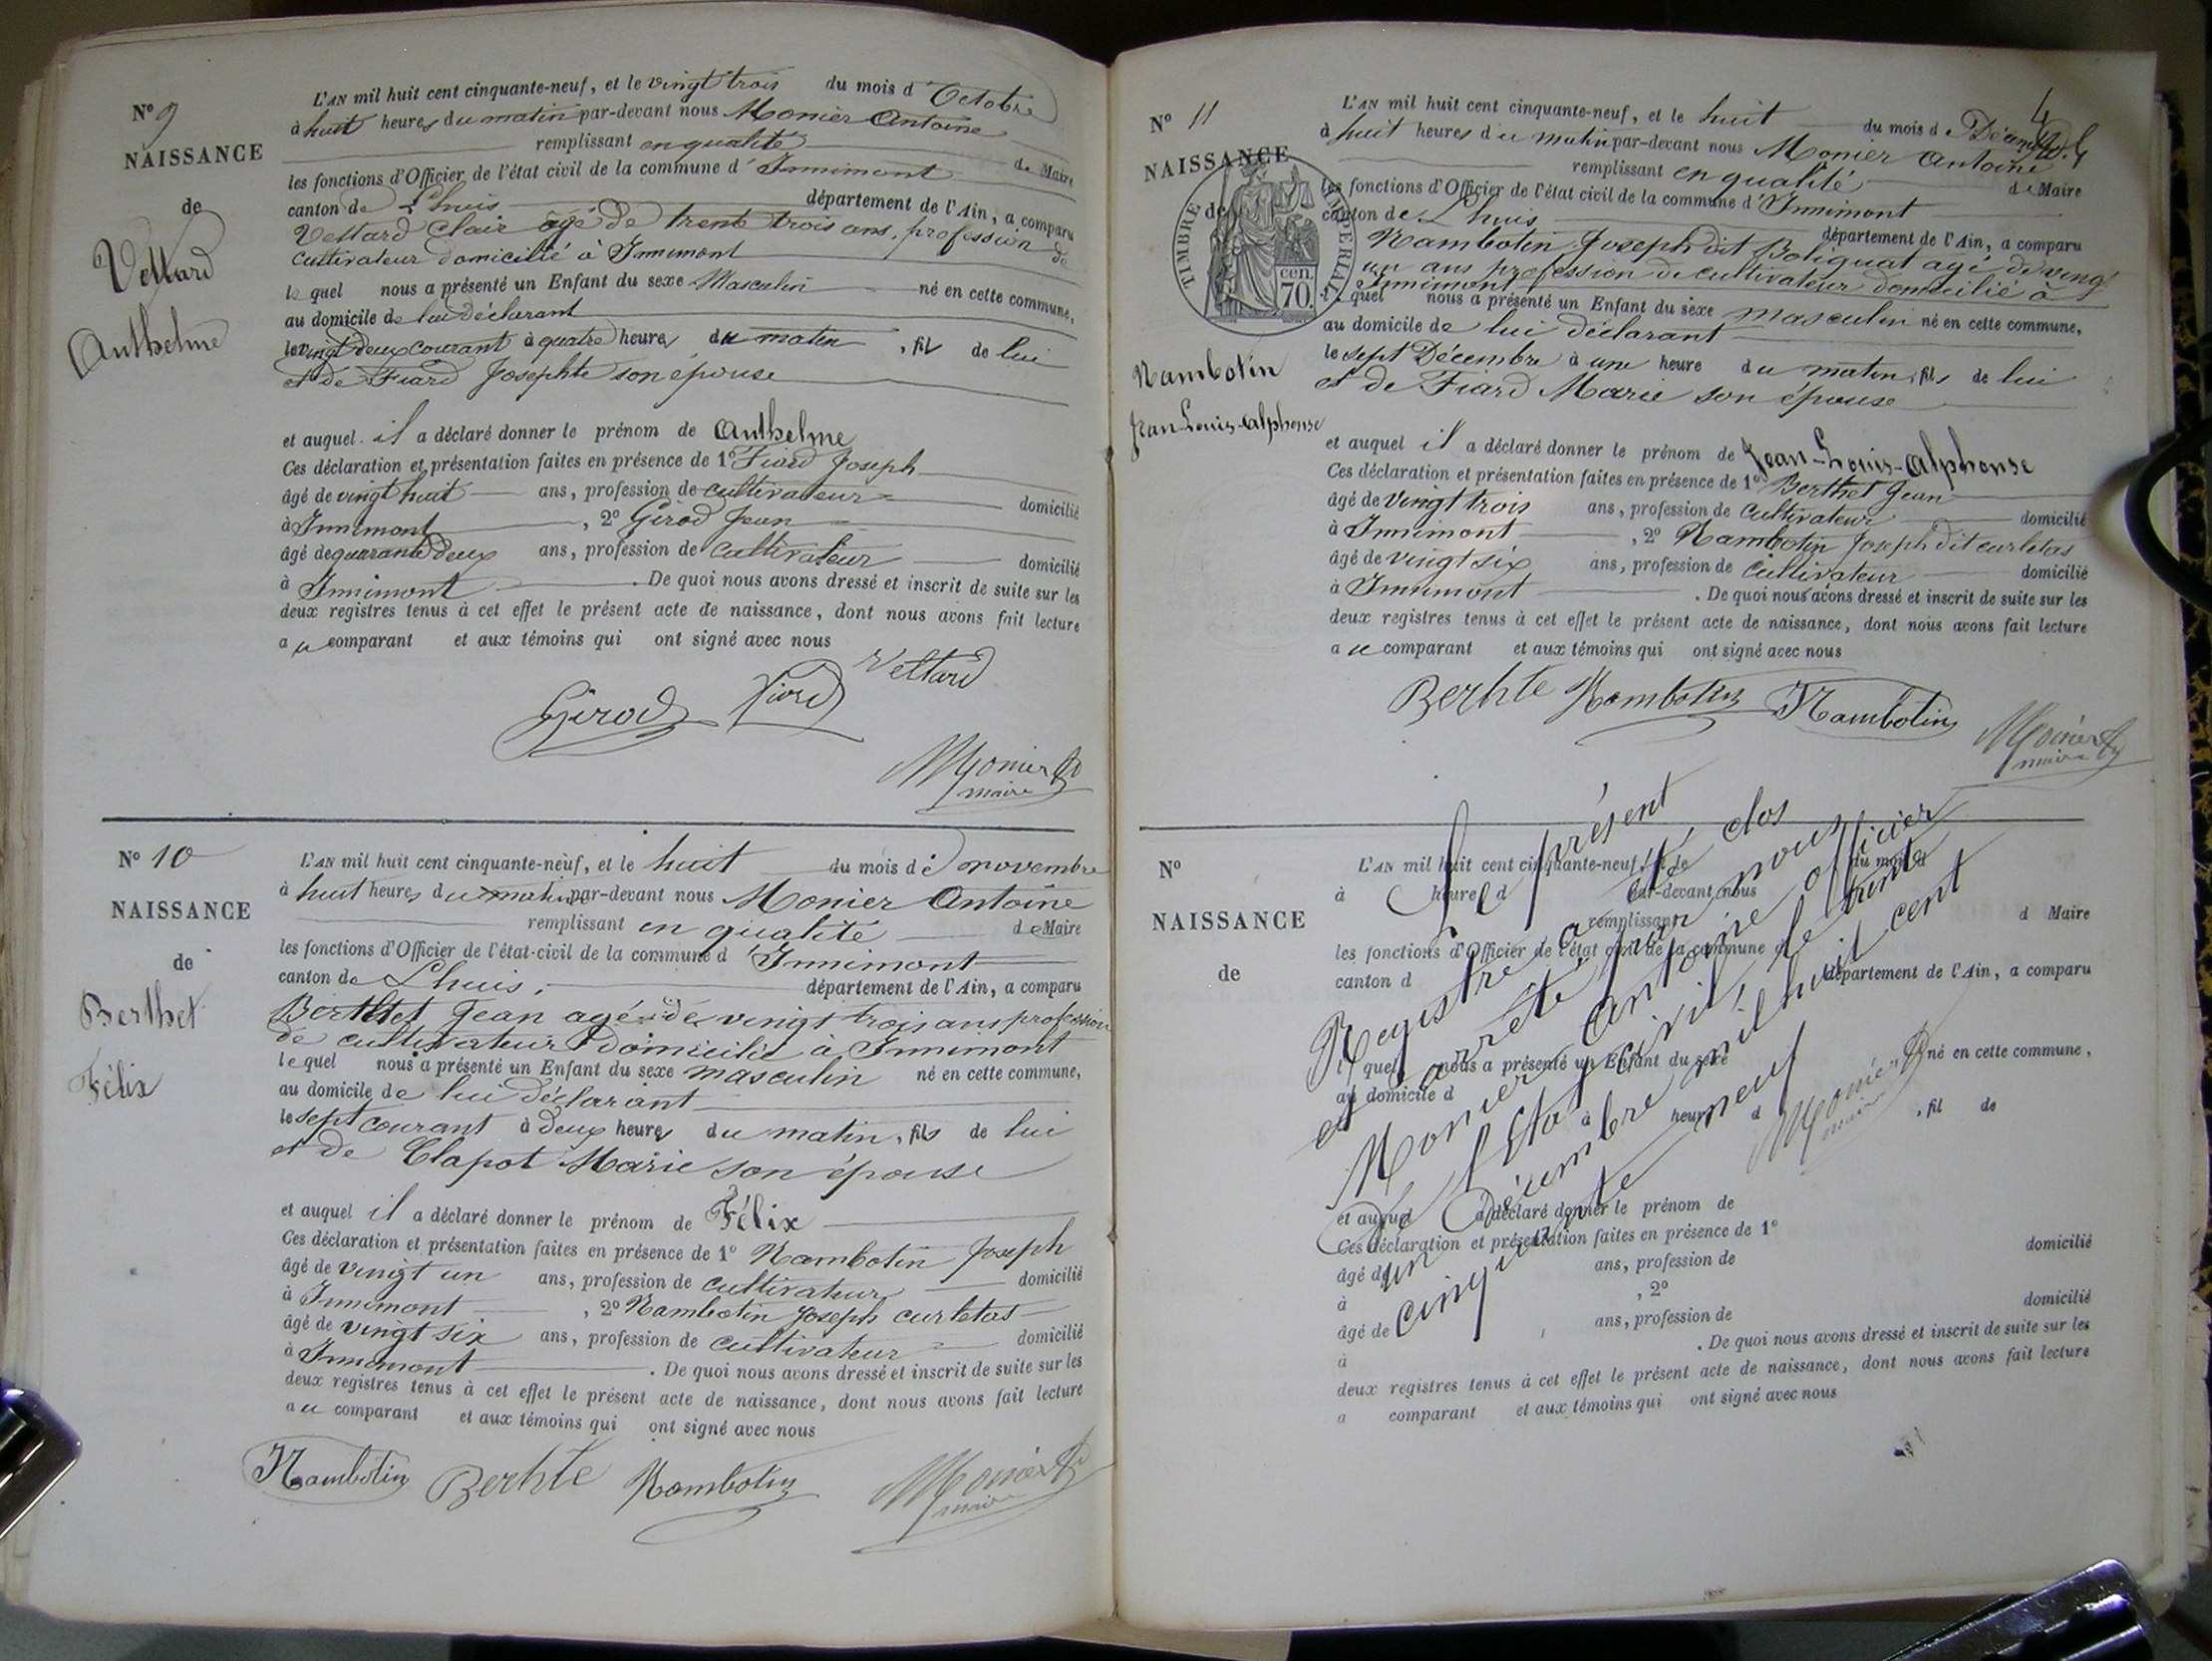 N° 9
NAISSANCE
de
Vettard
Anthelme
L'AN mil huit cent cinquante-neuf, et le vingt trois du mois d'Octobre
à huit heures du matin par-devant nous Monier Antoine
remplissant en qualité de Maire
les fonctions d'Officier de l'état civil de la commune d'Innimont
canton de Lhuis département de l'Ain, a comparu
Vettard Clair agé de trente trois ans, profession de
cultivateur domicilié à Innimont
le quel nous a présenté un Enfant du sexe Masculin né en cette commune,
au domicile de lui déclarant
le vingt deux courant à quatre heures du matin, fils de lui
et de Fiard Josephte son épouse
et auquel il a déclaré donner le prénom de Anthelme
Ces déclaration et présentation faites en présence de 1° Fiard Joseph
âgé de vingt huit ans, profession de cultivateur domicilié
à Innimont, 2° Girod Jean
âgé de quarante deux ans, profession de cultivateur domicilié
à Innimont. De quoi nous avons dressé et inscrit de suite sur les
deux registres tenus à cet effet le présent acte de naissance, dont nous avons fait lecture
au comparant et aux témoins qui ont signé avec nous
Vettard
Girod Fiard
Monier
maire
N° 10
NAISSANCE
de
Berthet
Félix
L'AN mil huit cent cinquante-neuf, et le huit du mois de novembre
à huit heures du matin par-devant nous Monier Antoine
remplissant en qualité de Maire
les fonctions d'Officier de l'état-civil de la commune d'Innimont
canton de Lhuis, département de l'Ain, a comparu
Berthet Jean agé de vingt trois ans profession
de cultivateur domicilié à Innimont
le quel nous a présenté un Enfant du sexe masculin né en cette commune,
au domicile de lui déclarant
le sept courant à deux heures du matin, fils de lui
et de Clapot Marie son épouse
et auquel il a déclaré donner le prénom de Félix
Ces déclaration et présentation faites en présence de 1° Nambotin Joseph
âgé de vingt un ans, profession de cultivateur domicilié
à Innimont, 2° Nambotin Joseph curletas
âgé de vingt six ans, profession de cultivateur domicilié
à Innimont. De quoi nous avons dressé et inscrit de suite sur les
deux registres tenus à cet effet le présent acte de naissance, dont nous avons fait lecture
au comparant et aux témoins qui ont signé avec nous
Nambotin Berhte Nambotin Monier
maire
4
N° 11
NAISSANCE
de
TIMBRE IMPERIAL
70 cen.
Nambotin
Jean-Louis-Alphonse
L'AN mil huit cent cinquante-neuf, et le huit du mois de Décembre
à huit heures du matin par-devant nous Monier Antoine
remplissant en qualité de Maire
les fonctions d'Officier de l'état civil de la commune d'Innimont
canton de Lhuis département de l'Ain, a comparu
Nambotin Joseph dit Boliguat agé de vingt
un ans profession de cultivateur domicilié à
Innimont
le quel nous a présenté un Enfant du sexe masculin né en cette commune,
au domicile de lui déclarant
le sept Décembre à une heure du matin, fils de lui
et de Fiard Marie son épouse
et auquel il a déclaré donner le prénom de Jean-Louis-Alphonse
Ces déclaration et présentation faites en présence de 1° Berthet Jean
âgé de vingt trois ans, profession de cultivateur domicilié
à Innimont, 2° Nambotin Joseph dit curletas
âgé de vingt six ans, profession de cultivateur domicilié
à Innimont. De quoi nous avons dressé et inscrit de suite sur les
deux registres tenus à cet effet le présent acte de naissance, dont nous avons fait lecture
au comparant et aux témoins qui ont signé avec nous
Berhte Nambotin Nambotin Monier
maire
N°
NAISSANCE
de
L'AN mil huit cent cinquante-neuf, et le du mois d
à heure d par-devant nous
remplissant d Maire
les fonctions d'Officier de l'état civil de la commune d
canton d département de l'Ain, a comparu
l quel nous a présenté un Enfant du sexe né en cette commune,
au domicile d
à heure d , fil de
et auquel a déclaré donner le prénom de
Ces déclaration et présentation faites en présence de 1°
âgé de ans, profession de domicilié
à , 2°
âgé de ans, profession de domicilié
à . De quoi nous avons dressé et inscrit de suite sur les
deux registres tenus à cet effet le présent acte de naissance, dont nous avons fait lecture
a comparant et aux témoins qui ont signé avec nous
Le présent
Registre a été clos
et arrêté par nous
Monier Antoine officier
de l'état civil, le trente
un Décembre mil huit cent
cinquante neuf
Monier
maire